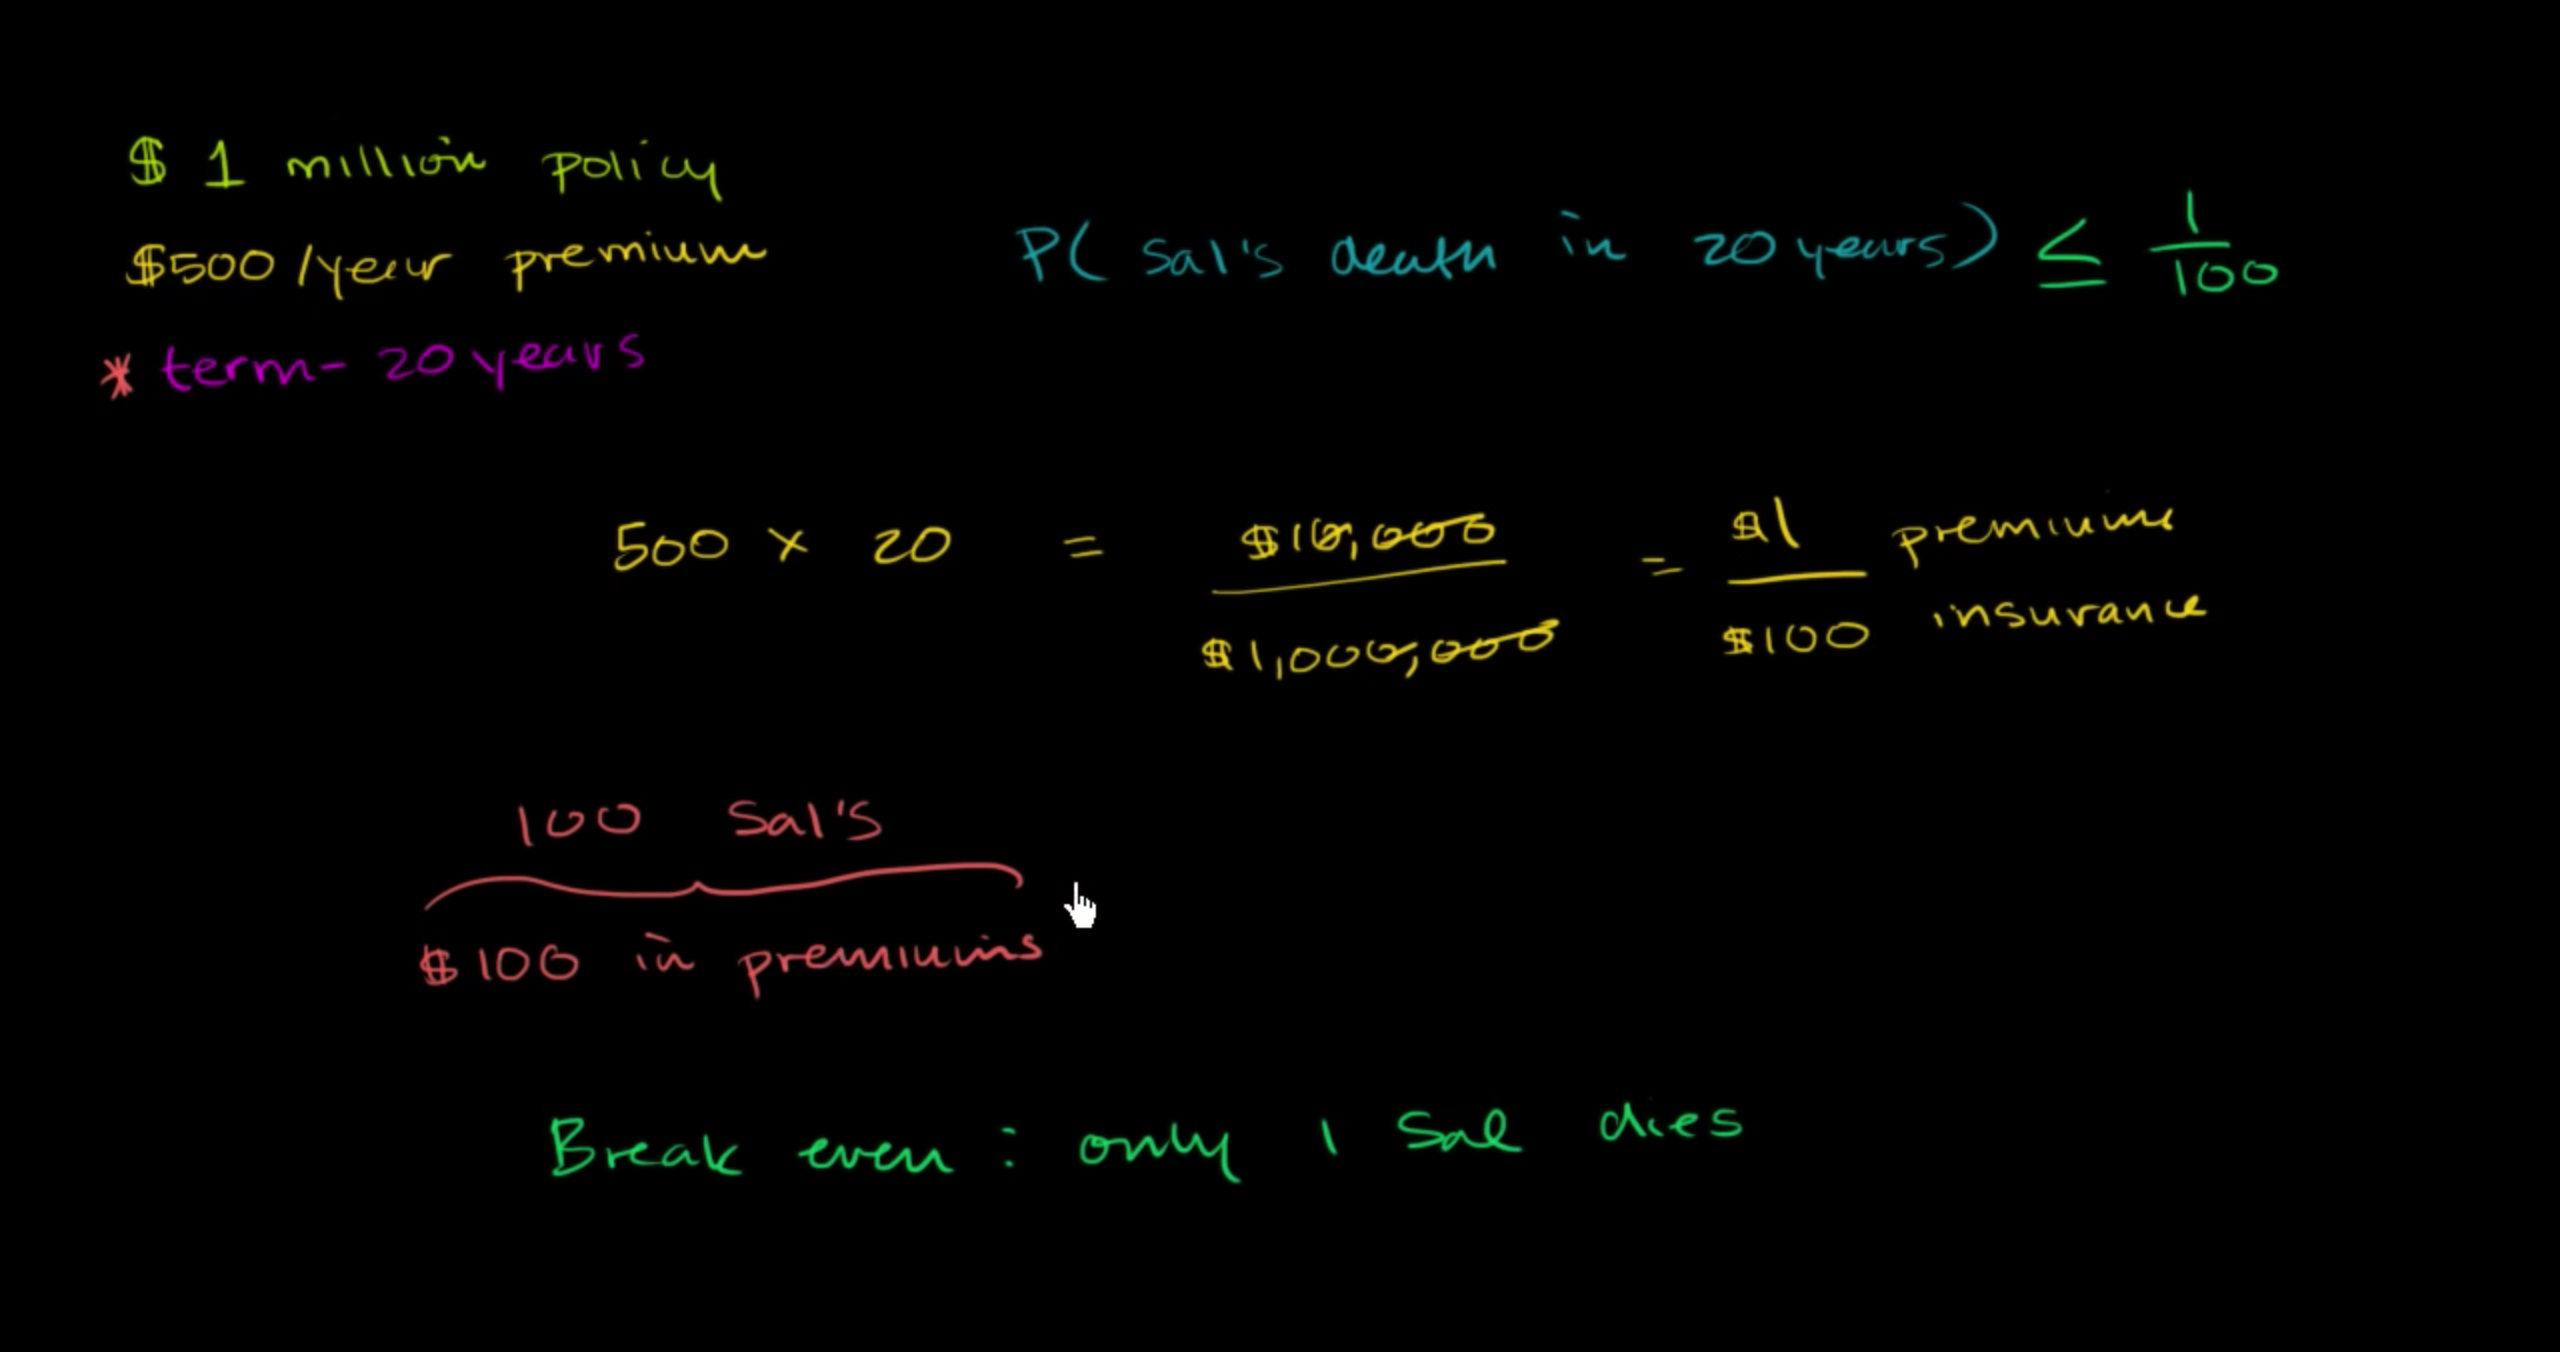 $ 1 million policy
$500 /year premium
P( Sal's death in 20 years) ≤ 1/100
* term - 20 years
500 x 20 = $10,000/$1,000,000 = $1/$100 premiums insurance
100 Sal's
$100 in premiums
Break even : only 1 Sal dies